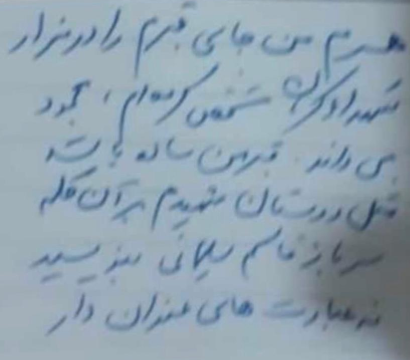 همسرم من جای قبرم را در مزار
شهدای کرمان مشخص کرده‌ام، محمود
می داند. قبر من ساده باشد
مثل دوستان شهیدم بر آن کلمه
سرباز قاسم سلیمانی بنویسید
نه عبارت های عنوان دار